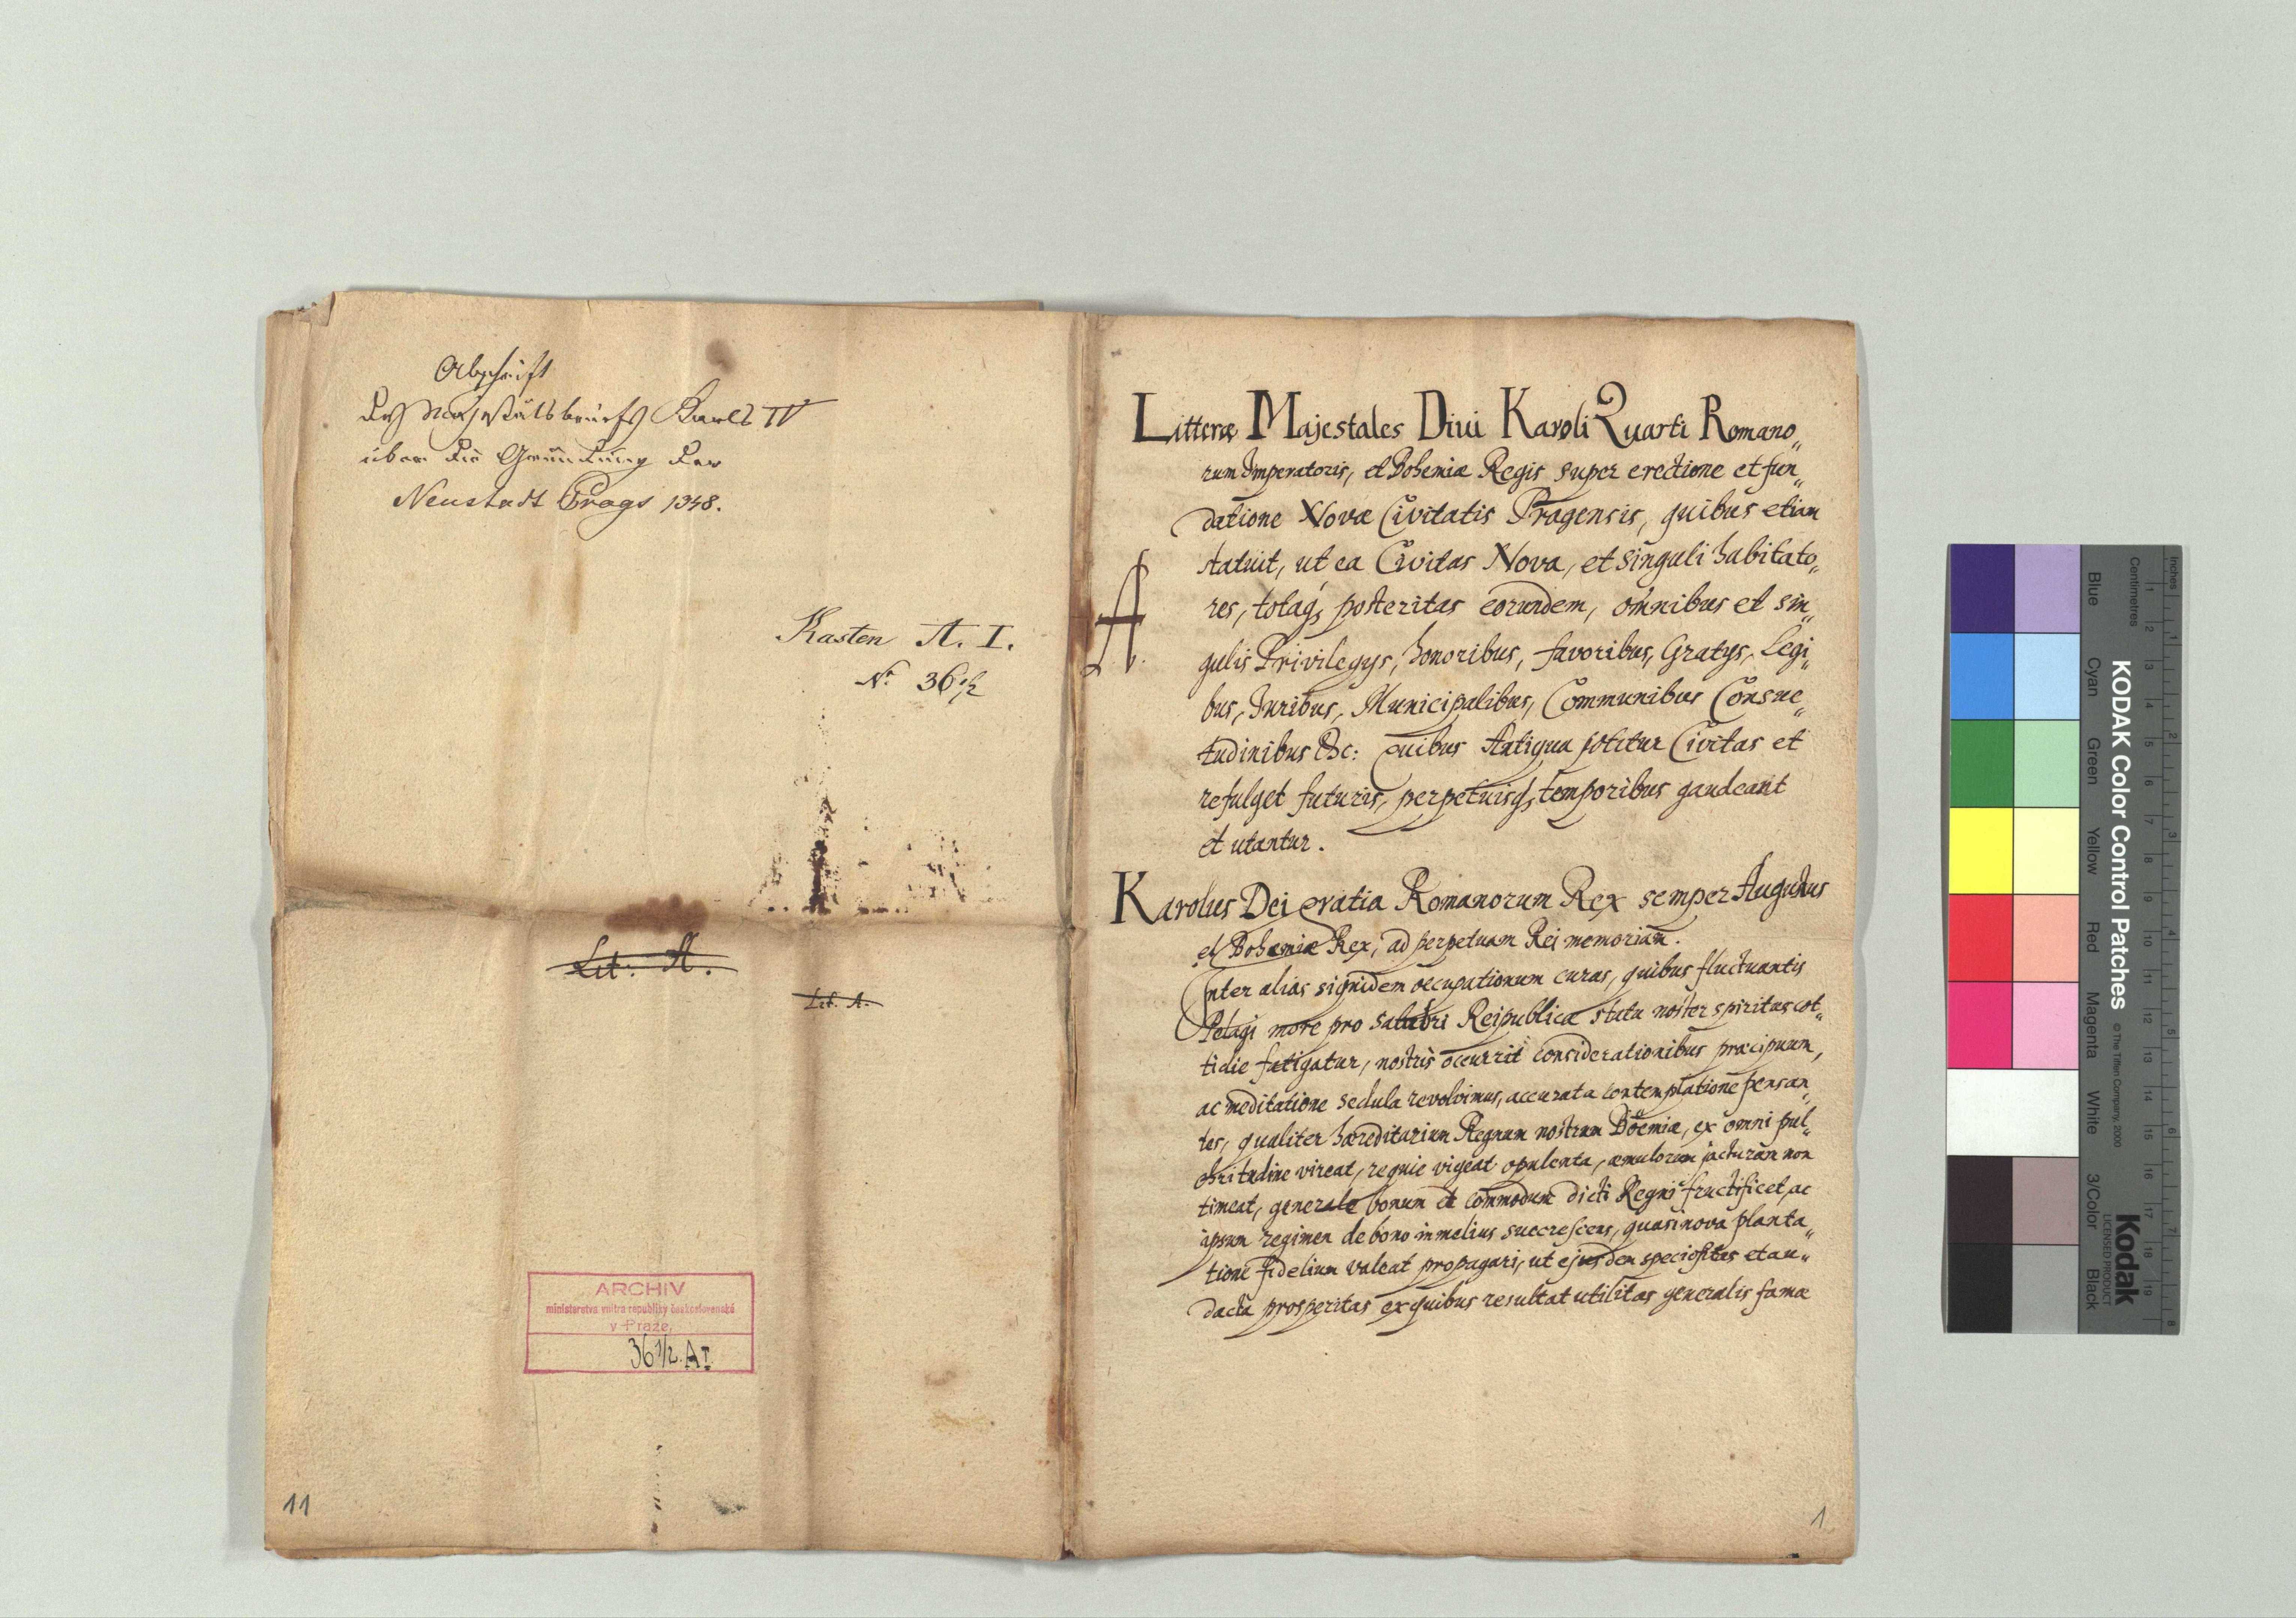 Abschrift
des Majestätsbriefs Karls IV
über die Gründung der
Neustadt Prags 1348.
Kasten A. I.
Nr. 36 1/2
Lit: A.
Lit. A.
ARCHIV
ministerstva vnitra republiky československé
v Praze.
36 1/2. A I
11
Litteræ Majestales Divi Karoli Quarti Romano„
rum Imperatoris, et Bohemiæ Regis super erectione et fun„
datione Novæ Civitatis Pragensis, quibus etiam
statuit, ut ea Civitas Nova, et singuli habitato„
res, totaq, posteritas eorundem, omnibus et sin„
gulis Privilegys, honoribus, favoribus, Gratys, Legi„
bus, Juribus, Municipalibus, Communibus Consue„
tudinibus &c: quibus Antiqua potitur Civitas et
refulget futuris, perpetuisq, temporibus gaudeant
et utantur.
A
Karolus Dei gratia Romanorum Rex semper Augustus
et Bohemiæ Rex, ad perpetuam Rei memoriam.
Inter alias siquidem occupationum curas, quibus fluctuantis
Pelagi more pro salubri Reipublicæ statu noster spiritus cot„
tidie fatigatur, nostris occurrit considerationibus præcipuum,
ac meditatione sedula revolvimus, accurata contemplatione pensan„
tes, qualiter hæreditarium Regnum nostrum Boemiæ, ex omni pul„
chritudine vireat, requie vigeat opulenta, æmulorum jacturam non
timeat, generale bonum et commodum dicti Regni fructificet, ac
ipsum regimen de bono in melius succrescens, quasi nova planta„
tione fidelium valeat propagari, ut ejusdem speciositas et au„
dacta prosperitas ex quibus resultat utilitas generalis famæ
1
KODAK Color Control Patches
© The Tiffen Company, 2000
Kodak
LICENSED PRODUCT
Inches
Centimetres
Blue
Cyan
Green
Yellow
Red
Magenta
White
3/Color
Black
1 2 3 4 5 6 7 8 9 10 11 12 13 14 15 16 17 18 19
1 2 3 4 5 6 7 8